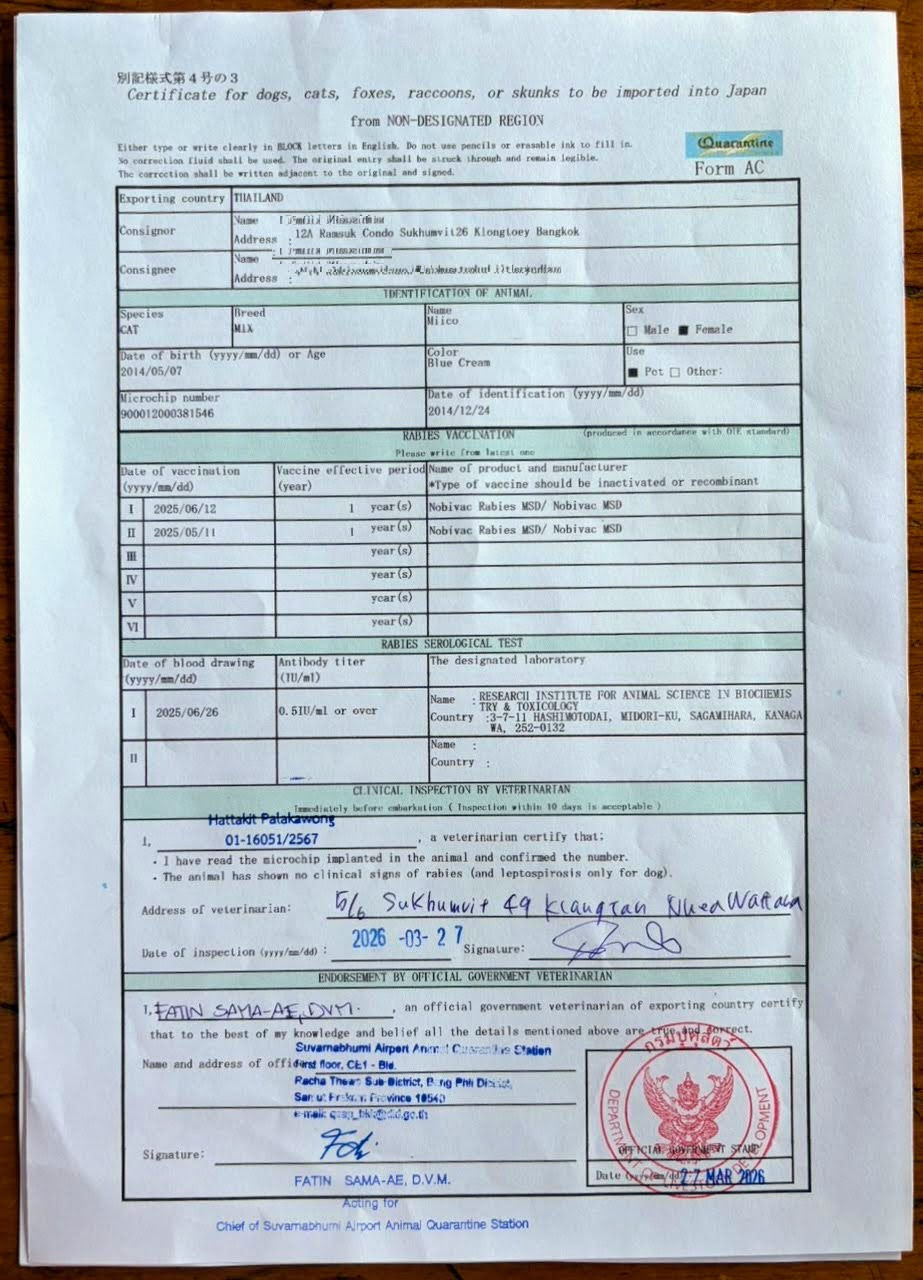 別記様式第4号の3
Certificate for dogs, cats, foxes, raccoons, or skunks to be imported into Japan
from NON-DESIGNATED REGION
Either type or write clearly in BLOCK letters in English. Do not use pencils or erasable ink to fill in.
No correction fluid shall be used. The original entry shall be struck through and remain legible.
The correction shall be written adjacent to the original and signed.
Quarantine
Form AC
Exporting country THAILAND
Consignor
Name
Address : 12A Ramsuk Condo Sukhumvit26 Klongtoey Bangkok
Consignee
Name :
Address :
IDENTIFICATION OF ANIMAL
Species
CAT
Breed
MIX
Name
Miico
Sex
□ Male ■ Female
Date of birth (yyyy/mm/dd) or Age
2014/05/07
Color
Blue Cream
Use
■ Pet □ Other:
Microchip number
900012000381546
Date of identification (yyyy/mm/dd)
2014/12/24
RABIES VACCINATION (produced in accordance with OIE standard)
Please write from latest one
Date of vaccination
(yyyy/mm/dd)
Vaccine effective period
(year)
Name of product and manufacturer
*Type of vaccine should be inactivated or recombinant
I 2025/06/12 1 year(s) Nobivac Rabies MSD/ Nobivac MSD
II 2025/05/11 1 year(s) Nobivac Rabies MSD/ Nobivac MSD
III year(s)
IV year(s)
V year(s)
VI year(s)
RABIES SEROLOGICAL TEST
Date of blood drawing
(yyyy/mm/dd)
Antibody titer
(IU/ml)
The designated laboratory
I 2025/06/26 0.5IU/ml or over
Name : RESEARCH INSTITUTE FOR ANIMAL SCIENCE IN BIOCHEMIS
TRY & TOXICOLOGY
Country :3-7-11 HASHIMOTODAI, MIDORI-KU, SAGAMIHARA, KANAGA
WA, 252-0132
II
Name :
Country :
CLINICAL INSPECTION BY VETERINARIAN
Immediately before embarkation ( Inspection within 10 days is acceptable )
Hattakit Palakawong
I, 01-16051/2567 , a veterinarian certify that:
・I have read the microchip implanted in the animal and confirmed the number.
・The animal has shown no clinical signs of rabies (and leptospirosis only for dog).
Address of veterinarian: 5/6 Sukhumvit 49 Klangtan Nuea Wattana
Date of inspection (yyyy/mm/dd) : 2026 -03- 27 Signature:
ENDORSEMENT BY OFFICIAL GOVERNMENT VETERINARIAN
I, FATIN SAMA-AE, DVM. , an official government veterinarian of exporting country certify
that to the best of my knowledge and belief all the details mentioned above are true and correct.
Suvarnabhumi Airport Animal Quarantine Station
Name and address of offi First floor, CE1 - Bld.
Racha Thewa Sub-District, Bang Phli District,
Samut Prakarn Province 10540
e-mail: qsap_bkk@dld.go.th
กรมปศุสัตว์
DEPARTMENT OF LIVESTOCK DEVELOPMENT
OFFICIAL GOVERNMENT STAMP
Signature:
Date (yyyy/mm/dd) 27 MAR 2026
FATIN SAMA-AE, D.V.M.
Acting for
Chief of Suvarnabhumi Airport Animal Quarantine Station